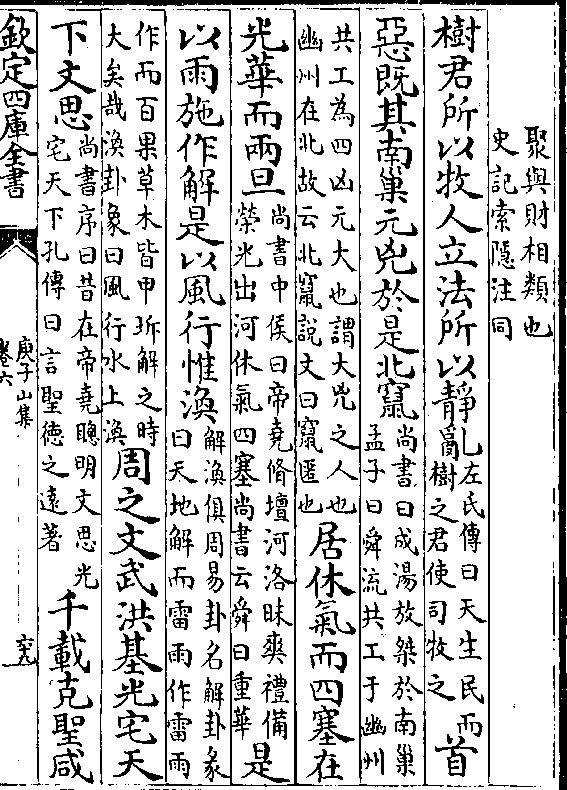 聚與財相類也
史記索隱注同
樹君所以牧人立法所以靜亂
左氏傳曰天生民而
樹之君使司牧之
首
惡既其南巢元兇於是北竄
尚書曰成湯放桀於南巢
孟子曰舜流共工于幽州
共工為四凶元大也謂大兇之人也
幽州在北故云北竄說文曰竄匿也
居休氣而四塞在
光華而兩旦
尚書中侯曰帝堯脩壇河洛昧爽禮備
榮光出河休氣四塞尚書云舜曰重華
是
以雨施作解是以風行惟渙
解渙俱周易卦名解卦彖
曰天地解而雷雨作雷雨
作而百果草木皆甲拆解之時
大矣哉渙卦象曰風行水上渙
周之文武洪基光宅天
下文思
尚書序曰昔在帝堯聰明文思光
宅天下孔傳曰言聖德之遠著
千載克聖咸
欽定四庫全書
庾子山集
卷六